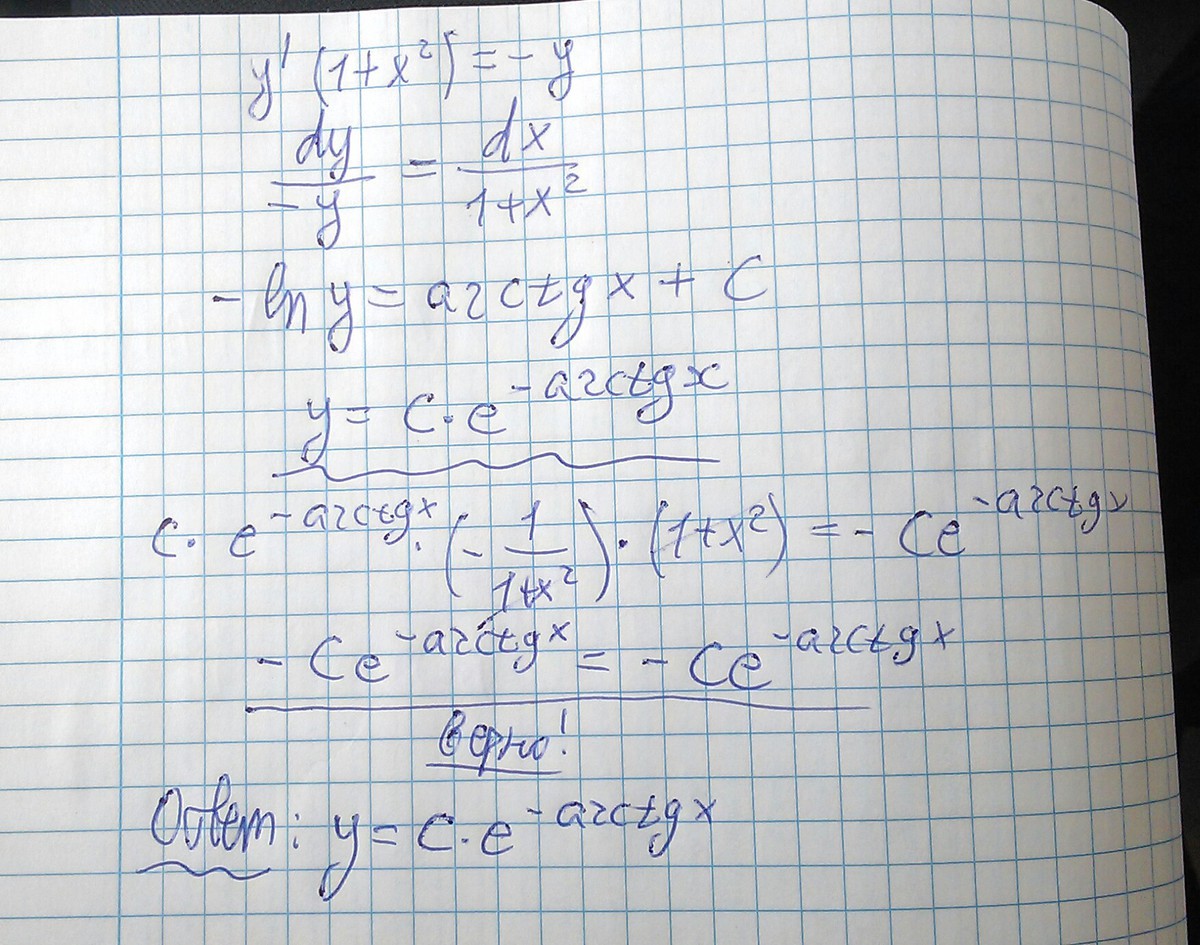 y' (1+x²) = -y
dy/-y = dx/1+x²
-ln y = arctg x + C
y = C · e^-arctg x
C · e^-arctg x · (-1/1+x²) · (1+x²) = -Ce^-arctg x
-Ce^-arctg x = -Ce^-arctg x
верно!
Ответ: y = C · e^-arctg x